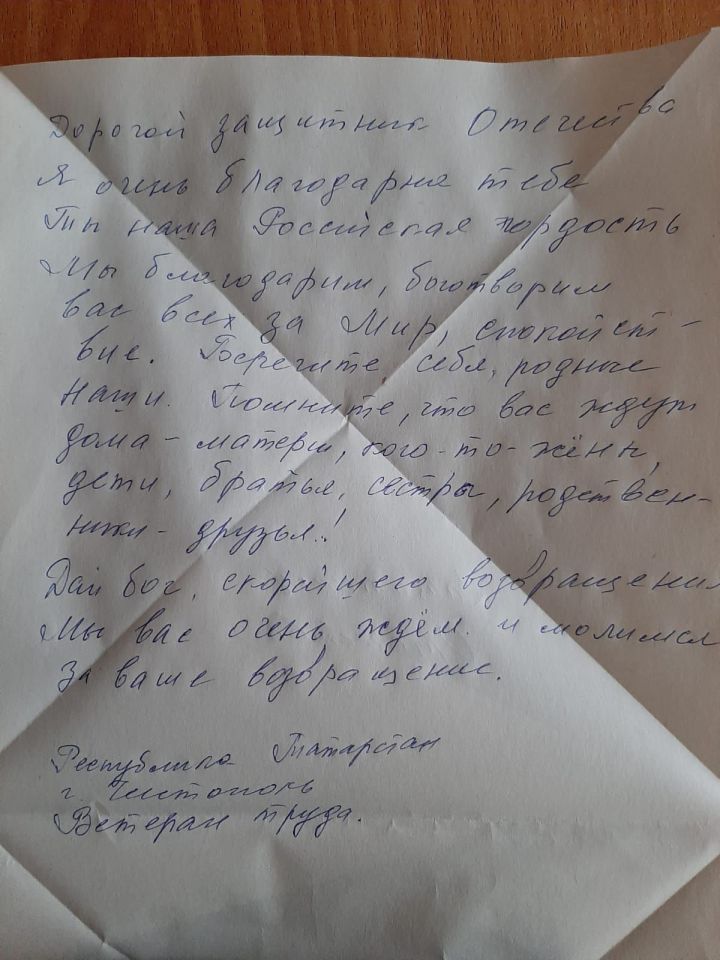 Дорогой защитник Отечества
Я очень благодарна тебе
Ты наша Российская гордость
Мы благодарим, боготворим
вас всех за Мир, спокойст-
вие. Берегите себя, родные
наши. Помните, что вас ждут
дома - матери, кого-то- жёны,
дети, братья, сёстры, родствен-
ники - друзья!
Дай бог, скорейшего возвращения
Мы вас очень ждём и молимся
За ваше возвращение.
Республика Татарстан
г. Чистополь
Ветеран труда.